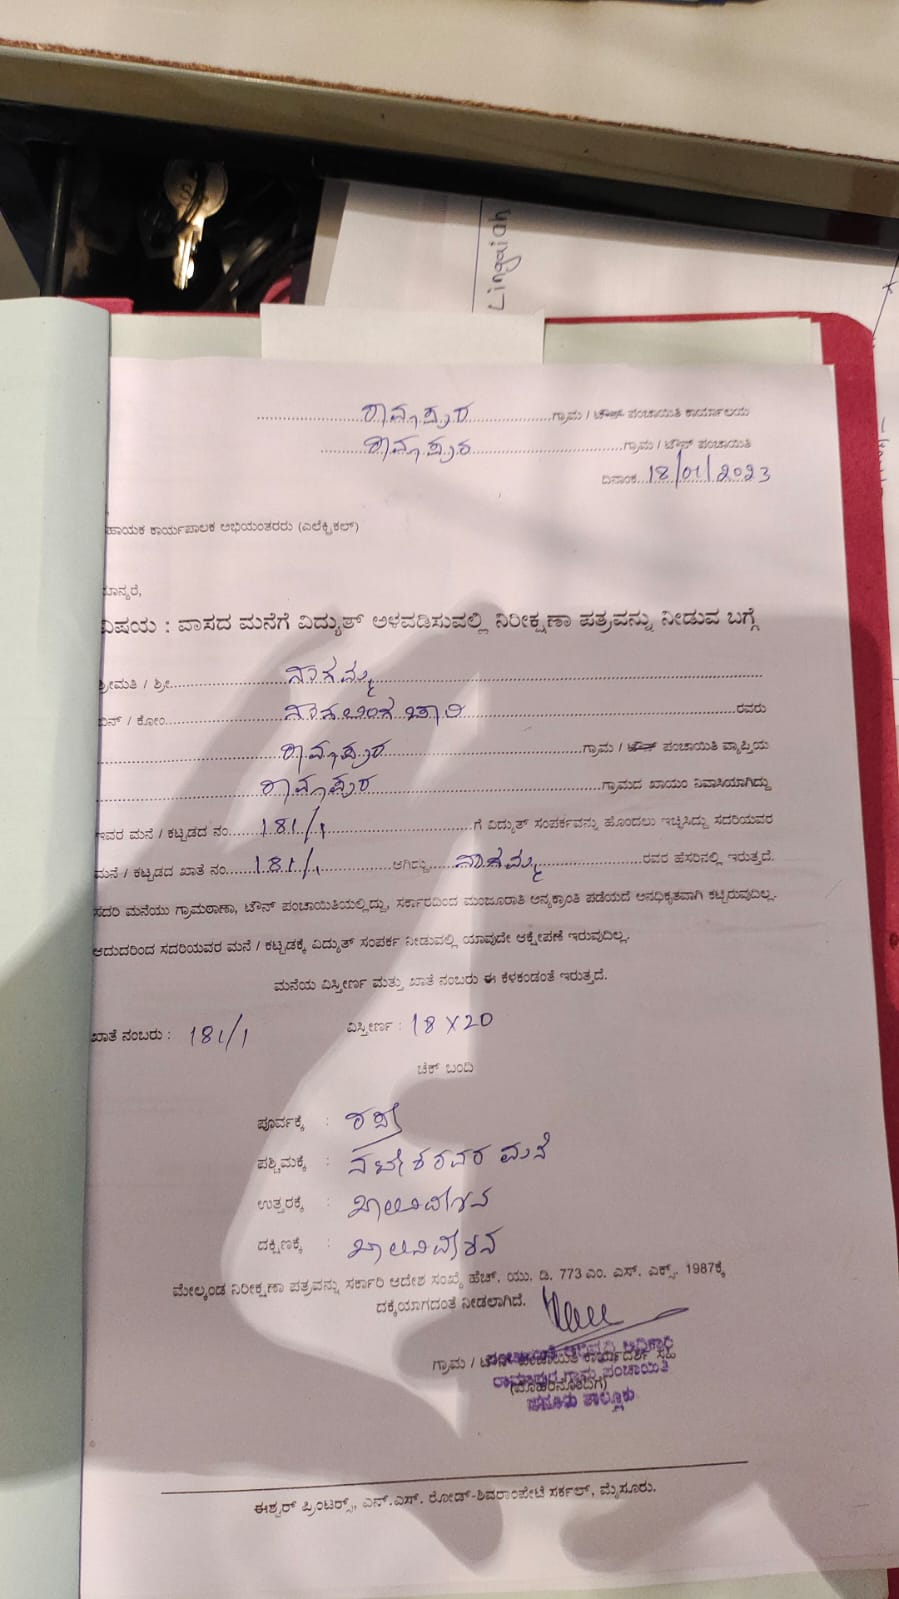 Lingaiah
ರಾಮಾಪುರ ಗ್ರಾಮ / ಟೌನ್ ಪಂಚಾಯಿತಿ ಕಾರ್ಯಾಲಯ
ರಾಮಾಪುರ ಗ್ರಾಮ / ಟೌನ್ ಪಂಚಾಯಿತಿ
ದಿನಾಂಕ 18/01/2023
ಹಾಯಕ ಕಾರ್ಯಪಾಲಕ ಅಭಿಯಂತರರು (ಎಲೆಕ್ಟ್ರಿಕಲ್)
ಮಾನ್ಯರೆ,
ವಿಷಯ : ವಾಸದ ಮನೆಗೆ ವಿದ್ಯುತ್ ಅಳವಡಿಸುವಲ್ಲಿ ನಿರೀಕ್ಷಣಾ ಪತ್ರವನ್ನು ನೀಡುವ ಬಗ್ಗೆ
ಶ್ರೀಮತಿ / ಶ್ರೀ. ನಾಗಮ್ಮ
ಬಿನ್ / ಕೋಂ ನಾಗಲಿಂಗ ಚಾರಿ ರವರು
ರಾಮಾಪುರ ಗ್ರಾಮ / ಟೌನ್ ಪಂಚಾಯಿತಿ ವ್ಯಾಪ್ತಿಯ
ರಾಮಾಪುರ ಗ್ರಾಮದ ಖಾಯಂ ನಿವಾಸಿಯಾಗಿದ್ದು
ಇವರ ಮನೆ / ಕಟ್ಟಡದ ನಂ. 181/1 ಗೆ ವಿದ್ಯುತ್ ಸಂಪರ್ಕವನ್ನು ಹೊಂದಲು ಇಚ್ಛಿಸಿದ್ದು ಸದರಿಯವರ
ಮನೆ / ಕಟ್ಟಡದ ಖಾತೆ ನಂ. 181/1 ಆಗಿದ್ದು ನಾಗಮ್ಮ ರವರ ಹೆಸರಿನಲ್ಲಿ ಇರುತ್ತದೆ.
ಸದರಿ ಮನೆಯು ಗ್ರಾಮಠಾಣಾ, ಟೌನ್ ಪಂಚಾಯಿತಿಯಲ್ಲಿದ್ದು, ಸರ್ಕಾರದಿಂದ ಮಂಜೂರಾತಿ ಅನ್ಯಕ್ರಾಂತಿ ಪಡೆಯದೆ ಅನಧಿಕೃತವಾಗಿ ಕಟ್ಟಿರುವುದಿಲ್ಲ.
ಆದುದರಿಂದ ಸದರಿಯವರ ಮನೆ / ಕಟ್ಟಡಕ್ಕೆ ವಿದ್ಯುತ್ ಸಂಪರ್ಕ ನೀಡುವಲ್ಲಿ ಯಾವುದೇ ಆಕ್ಷೇಪಣೆ ಇರುವುದಿಲ್ಲ.
ಮನೆಯ ವಿಸ್ತೀರ್ಣ ಮತ್ತು ಖಾತೆ ನಂಬರು ಈ ಕೆಳಕಂಡಂತೆ ಇರುತ್ತದೆ.
ಖಾತೆ ನಂಬರು : 181/1 ವಿಸ್ತೀರ್ಣ : 18 X 20
ಚೆಕ್ ಬಂದಿ
ಪೂರ್ವಕ್ಕೆ : ರಸ್ತೆ
ಪಶ್ಚಿಮಕ್ಕೆ : ನಟೇಶರವರ ಮನೆ
ಉತ್ತರಕ್ಕೆ : ಖಾಲಿನಿವೇಶನ
ದಕ್ಷಿಣಕ್ಕೆ : ಖಾಲಿನಿವೇಶನ
ಮೇಲ್ಕಂಡ ನಿರೀಕ್ಷಣಾ ಪತ್ರವನ್ನು ಸರ್ಕಾರಿ ಆದೇಶ ಸಂಖ್ಯೆ ಹೆಚ್. ಯು. ಡಿ. 773 ಎಂ. ಎಸ್. ಎಕ್ಸ್. 1987ಕ್ಕೆ
ದಕ್ಕೆಯಾಗದಂತೆ ನೀಡಲಾಗಿದೆ.
ಗ್ರಾಮ / ಟೌನ್ ಪಂಚಾಯಿತಿ ಕಾರ್ಯದರ್ಶಿ ಸಹಿ
(ಮೊಹರಿನೊಂದಿಗೆ)
ಪಂಚಾಯಿತಿ ಅಭಿವೃದ್ಧಿ ಅಧಿಕಾರಿ
ರಾಮಾಪುರ ಗ್ರಾಮ ಪಂಚಾಯಿತಿ
ಹನೂರು ತಾಲ್ಲೂಕು
ಈಶ್ವರ್ ಪ್ರಿಂಟರ್ಸ್, ಎನ್.ಎಸ್. ರೋಡ್-ಶಿವರಾಂಪೇಟೆ ಸರ್ಕಲ್, ಮೈಸೂರು.